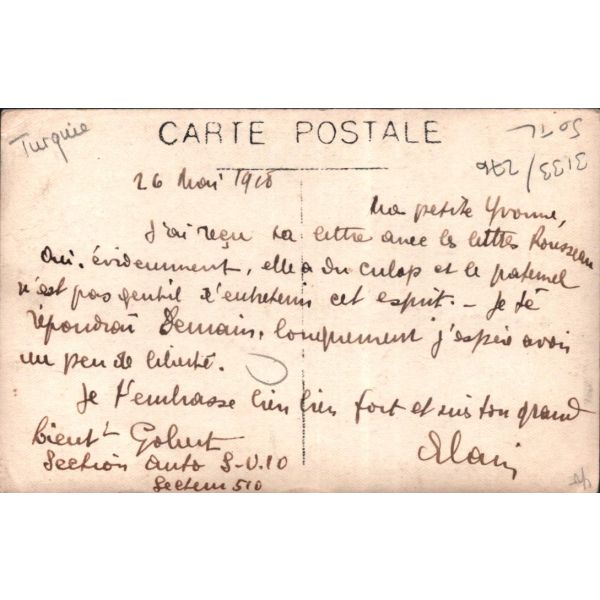 Turquie
CARTE POSTALE
3133/276
26 Mai 1918
Ma petite Yvonne,
J'ai reçu ta lettre avec les lettres Rousseau
Oui, évidemment, elle a du culop et le paternel
n'est pas gentil d'entretenir cet esprit. – Je te
répondrai demain, longuement j'espère avoir
un peu de liberté.
Je t'embrasse bien bien fort et suis ton grand
Alain
Lieut Gobert
Section auto S-U.10
Secteur 510